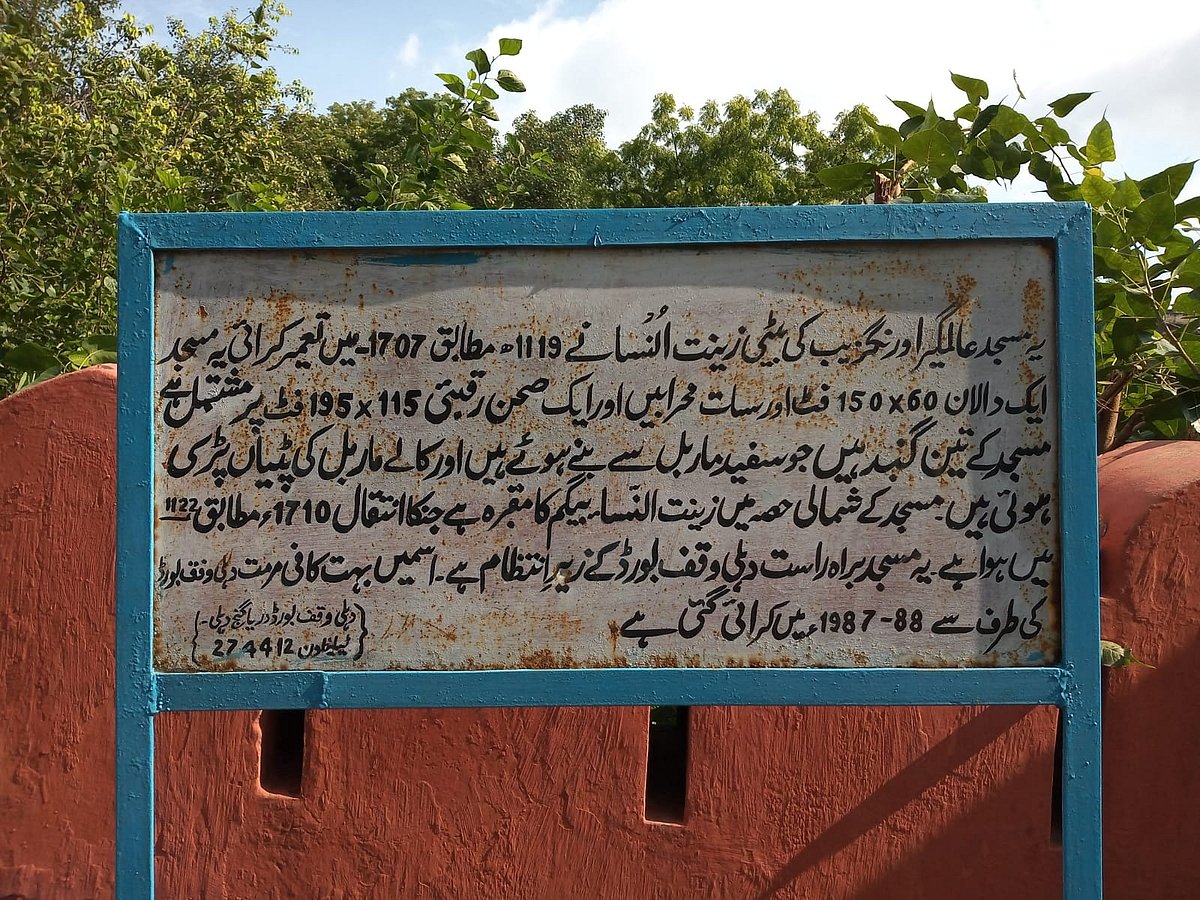 یہ مسجد عالمگیر اورنگزیب کی بیٹی زینت النُسا نے 1119ھ مطابق 1707ء میں تعمیر کرائی یہ مسجد
ایک دالان 60x150 فٹ اور سات محرابیں اور ایک صحن رقبئی 115x195 فٹ پر مشتمل ہے
مسجد کے تین گنبد ہیں جو سفید ماربل سے بنے ہوئے ہیں اور کالے ماربل کی پٹیاں پڑی
ہوئی ہیں۔ مسجد کے شمالی حصہ میں زینت النّساء بیگم کا مقبرہ ہے جنکا انتقال 1710ء مطابق 1122
میں ہوا ہے۔ یہ مسجد براہ راست دہلی وقف بورڈ کے زیرِ انتظام ہے۔ اسمیں بہت کافی مرمت دہلی وقف بورڈ
کی طرف سے 88-1987ء میں کرائی گئی ہے
دہلی وقف بورڈ دریا گنج دہلی۔
ٹیلیفون 274412